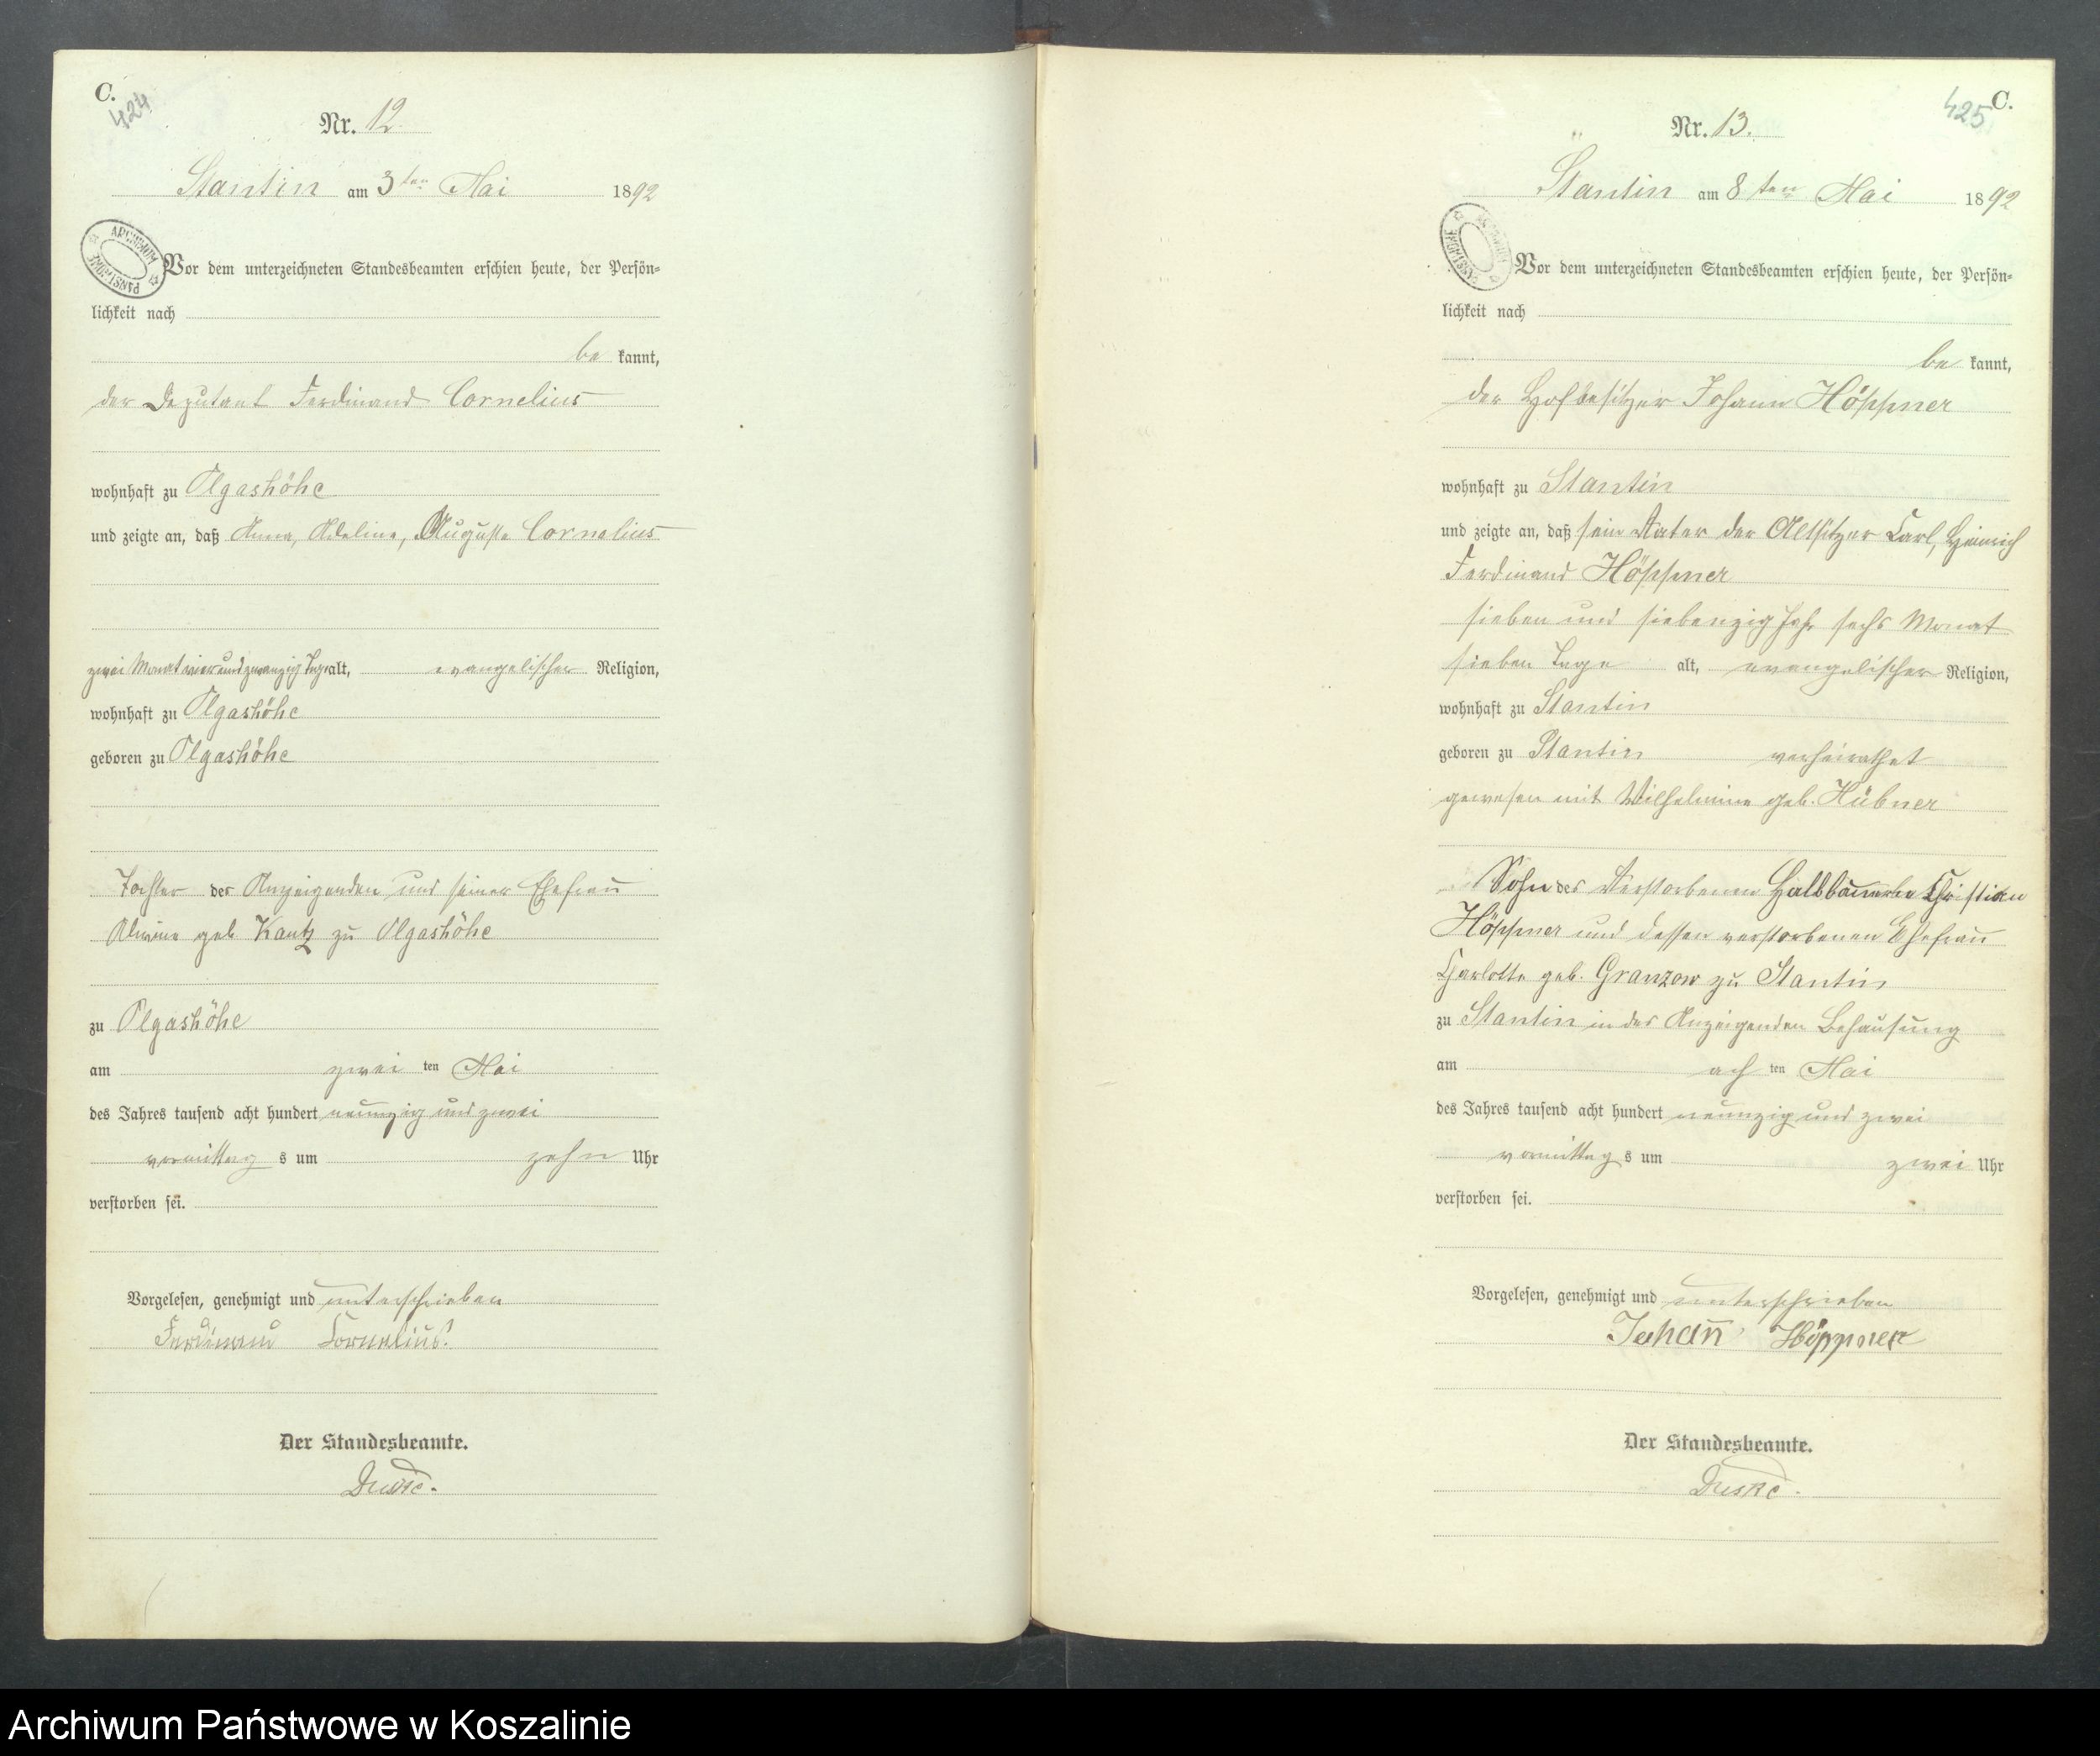 C.
424
Nr. 12.
Stantin am 3 ten Mai 1892
ARCHIWUM PAŃSTWOWE
Vor dem unterzeichneten Standesbeamten erschien heute, der Persön-
lichkeit nach
be kannt,
der Deputant Ferdinand Cornelius
wohnhaft zu Olgashöhe
und zeigte an, daß Anna, Adeline, Auguste Cornelius
zwei Monat vier und zwanzig Tage alt, evangelischer Religion,
wohnhaft zu Olgashöhe
geboren zu Olgashöhe
Tochter des Anzeigenden und seiner Ehefrau
Alwine geb. Kautz zu Olgashöhe
zu Olgashöhe
am zwei ten Mai
des Jahres tausend acht hundert neunzig und zwei
vormittag s um zehn Uhr
verstorben sei.
Vorgelesen, genehmigt und unterschrieben
Ferdinand Cornelius.
Der Standesbeamte.
425 C.
Nr. 13.
Stantin am 8 ten Mai 1892
ARCHIWUM PAŃSTWOWE
Vor dem unterzeichneten Standesbeamten erschien heute, der Persön-
lichkeit nach
be kannt,
der Hofbesitzer Johann Höppner
wohnhaft zu Stantin
und zeigte an, daß sein Vater der Altsitzer Carl, Heinrich
Ferdinand Höppner
sieben und siebenzig Jahr sechs Monat
sieben Tage alt, evangelischer Religion,
wohnhaft zu Stantin
geboren zu Stantin verheirathet
gewesen mit Wilhelmine geb. Hübner
Sohn des Verstorbenen Halbbauern Christian
Höppner und dessen verstorbenen Ehefrau
Charlotte geb. Granzow zu Stantin
zu Stantin in des Anzeigenden Behausung
am ach ten Mai
des Jahres tausend acht hundert neunzig und zwei
vormittag s um zwei Uhr
verstorben sei.
Vorgelesen, genehmigt und unterschrieben
Johann Höppner
Der Standesbeamte.
Archiwum Państwowe w Koszalinie